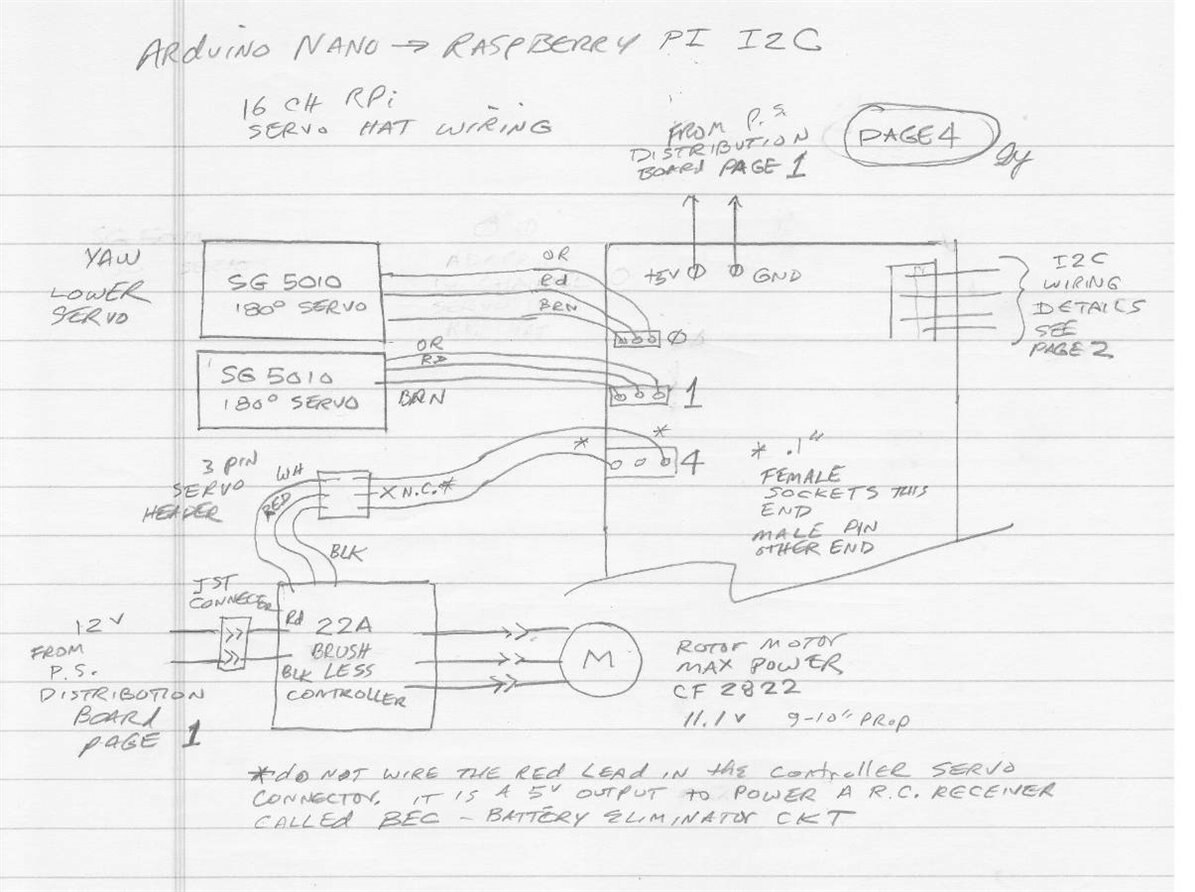 ARduiNO NANO → RASPBERRY PI I2C
16 CH RPi
SERVO HAT WIRING
FROM P.S.
DISTRIBUTION
BOARD PAGE 1
PAGE 4
YAW
LOWER
SERVO
SG 5010
180° SERVO
OR
Rd
BRN
+5V
GND
Ø
I2C
WIRING
DETAILS
SEE
PAGE 2
SG 5010
180° SERVO
OR
RD
BRN
1
3 PIN
SERVO
HEADER
WH
RED
BLK
X N.C.*
*
*
4
* .1"
FEMALE
SOCKETS THIS
END
MALE PIN
OTHER END
JST
CONNECTER
12V
FROM
P.S.
DISTRIBUTION
BOARd
PAGE 1
Rd
22A
BRUSH
BLK LESS
CONTROLLER
M
ROTOR MOTOR
MAX POWER
CF 2822
11.1V 9-10" PROP
*dO NOT WIRE THE RED LEAD IN the CONtroLLER SERVO
CONNECTOR. IT IS A 5V OUTPUT TO POWER A R.C. RECEIVER
CALLEd BEC - BATTERY ELIMINATOR CKT